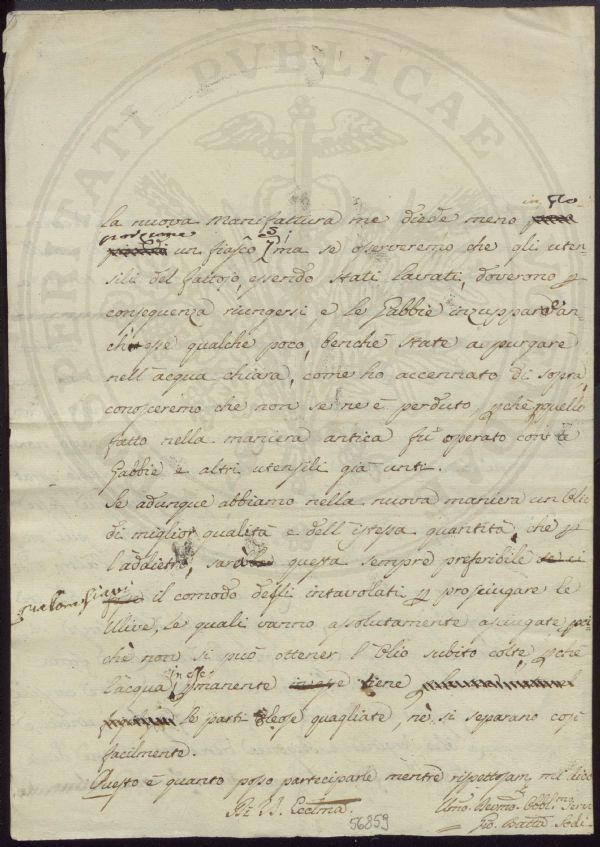 SPERITATI PVBLICAE
in Fto
La nuova Manifattura me diede meno
un fiasco ma se osserveremo che gli uten-
sili del Fattojo, essendo stati lavati, doverono p
conseguenza riungersi e le Gabbie inzuppar
qualche poco, benche state a purgare
nell' acqua chiara, come ho accennato di sopra,
conosceremo che non se ne è perduto, pchè quello
fatto nella maniera antica fù operato con le
Gabbie e altri utensili già unti.
Se adunque abbiamo nella nuova maniera un Olio
di miglior qualità e dell' istessa quantità, che p
l'addietro, sarà questa sempre preferibile
qualora siavi il comodo degli intavolati p prosciugare le
Ulive, le quali vanno assolutamente asciugate, poi-
chè non si può ottener l' Olio subito colte, pchè
l'acqua in esse pmanente tiene
le parti oleose quagliate, nè si separano così
facilmente.
Questo è quanto posso parteciparle mentre rispettosam. mi dico
Di V. S. Eccelma
Umo Devmo Obblmo Serv
Gio. Batta
56859